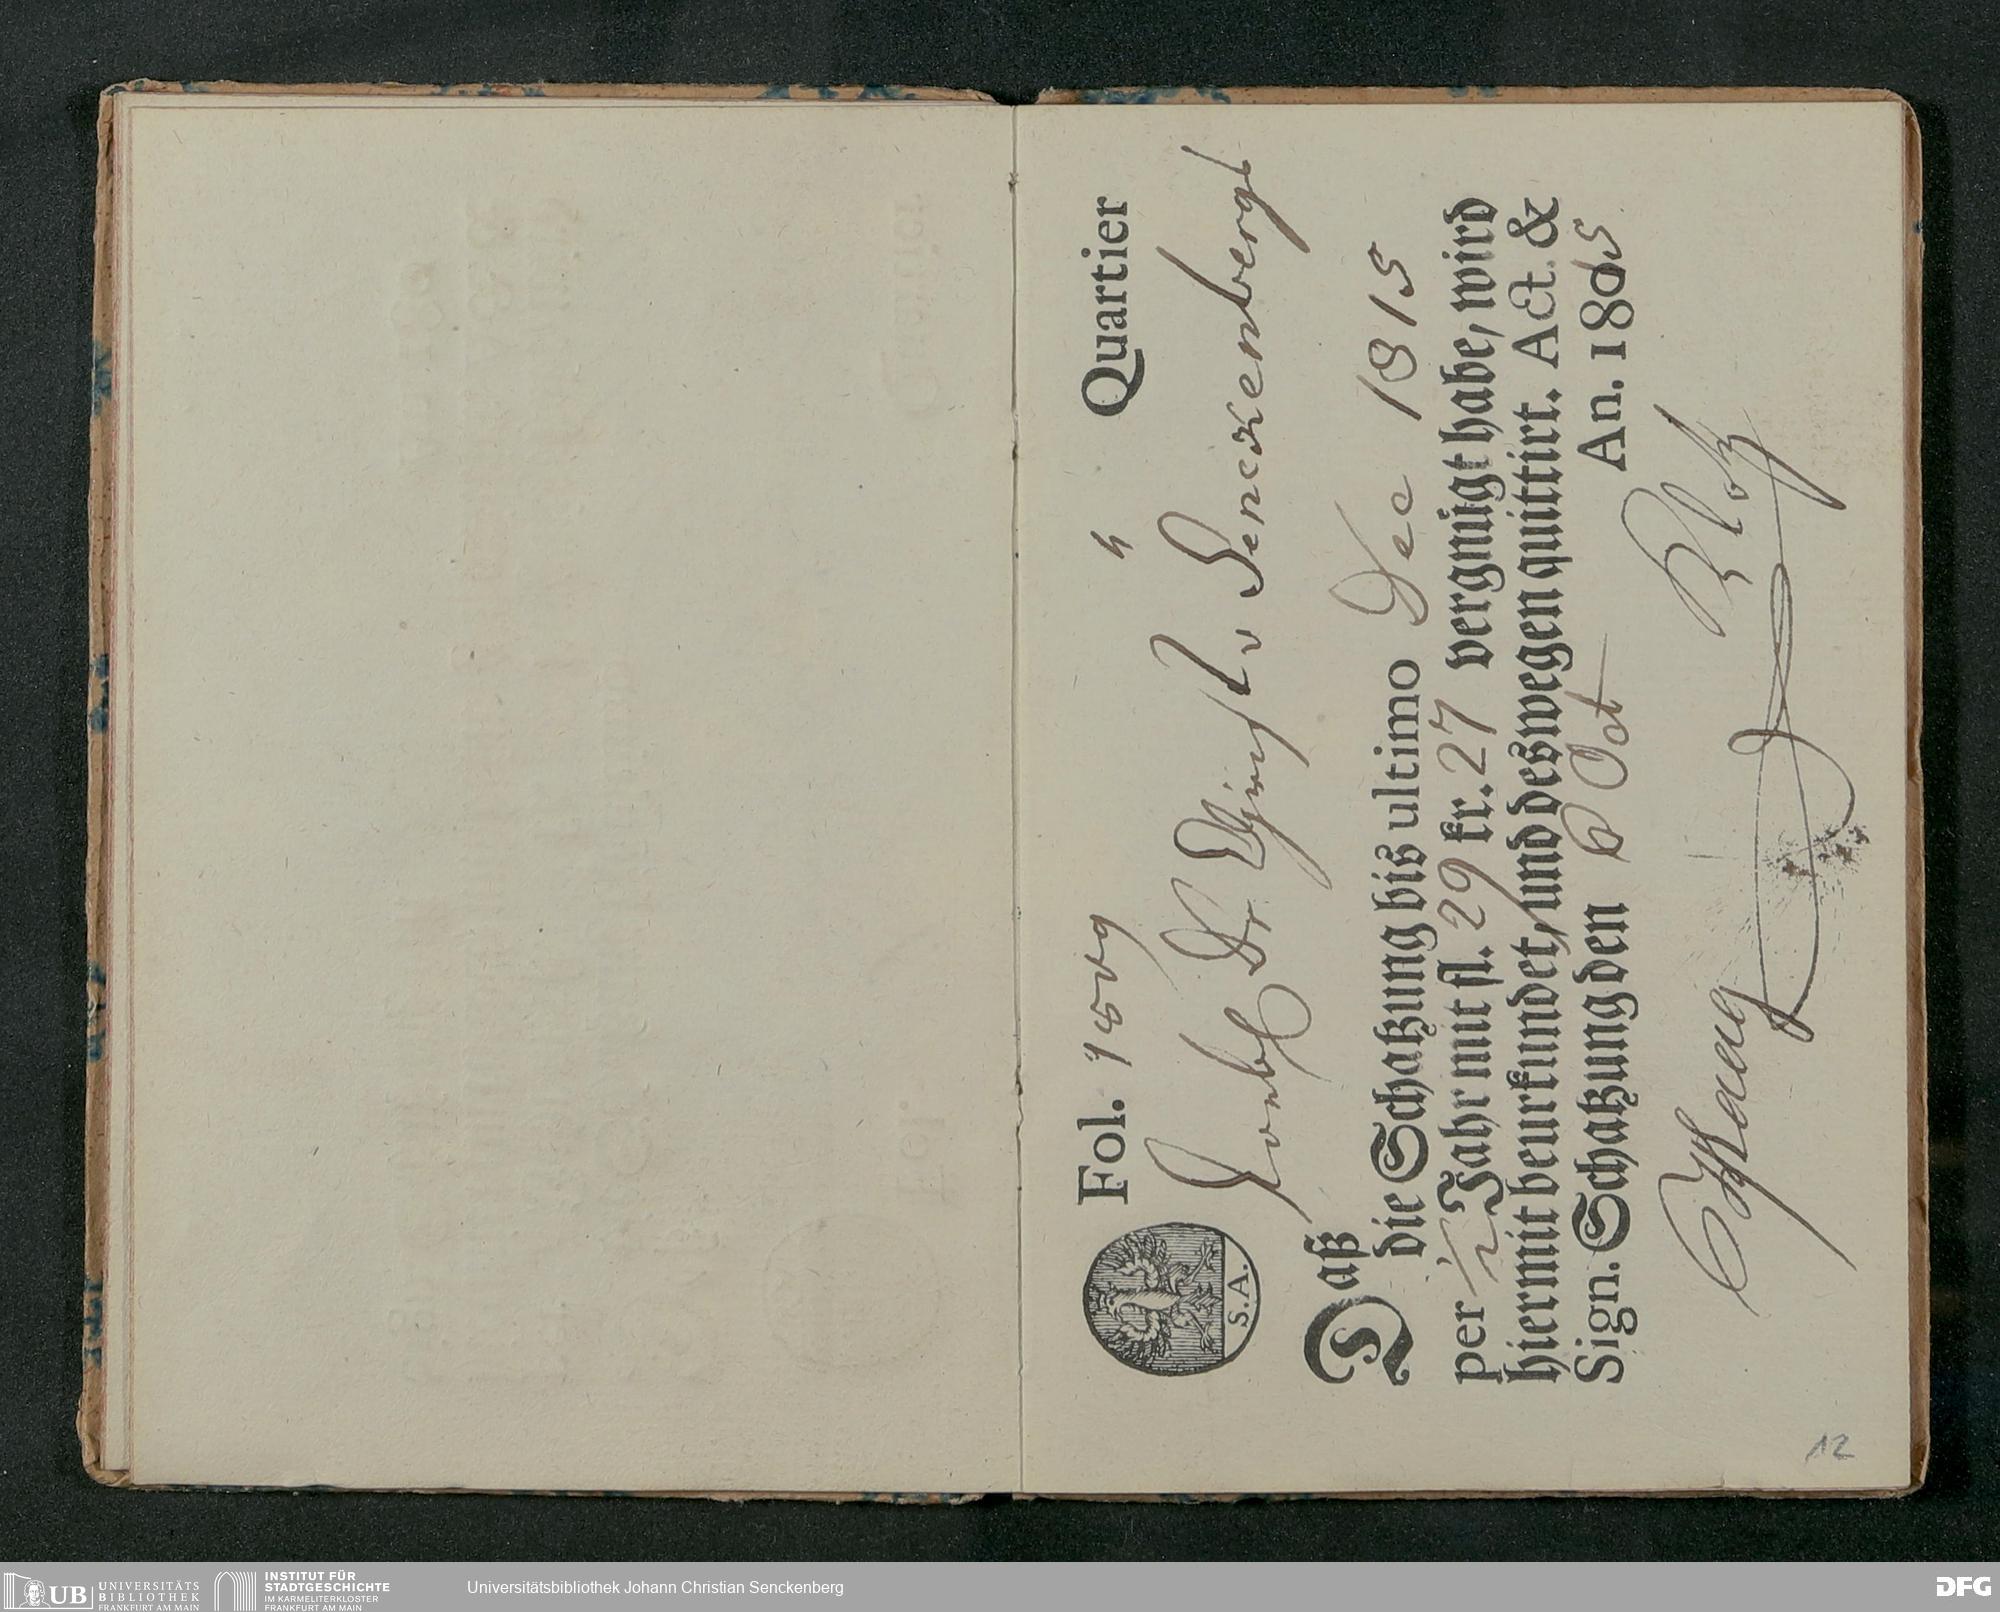 Fol. Quartier
S.A.
Dr v Senckenbergl
Daß
die Schatzung bis ultimo Dec 1815
per 1/2 Jahr mit fl. 29 kr. 27 vergnügt habe, wird
hiermit beurkundet, und deßwegen quittirt. Act. &
Sign. Schatzung den 6 Oct An. 1805
12
UB UNIVERSITÄTS
BIBLIOTHEK
FRANKFURT AM MAIN
INSTITUT FÜR
STADTGESCHICHTE
IM KARMELITERKLOSTER
FRANKFURT AM MAIN
Universitätsbibliothek Johann Christian Senckenberg
DFG